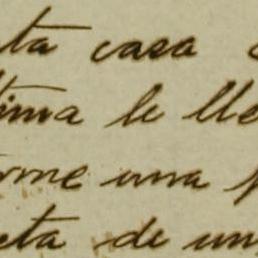 ta casa
tima le lle
orme una
eta de un